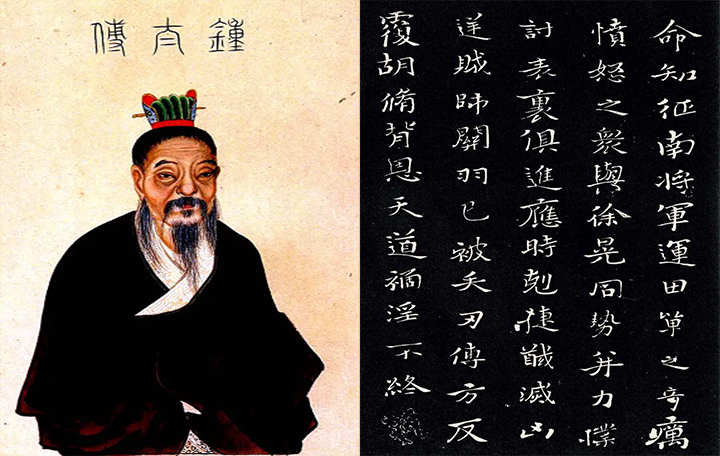 鍾太傅
命知征南將軍運田單之奇厲
憤怒之衆與徐晃同勢并力撲
討表裏俱進應時剋捷馘滅凶
逆賊帥關羽已被矢刃傅方反
覆胡脩背恩天道禍淫不終